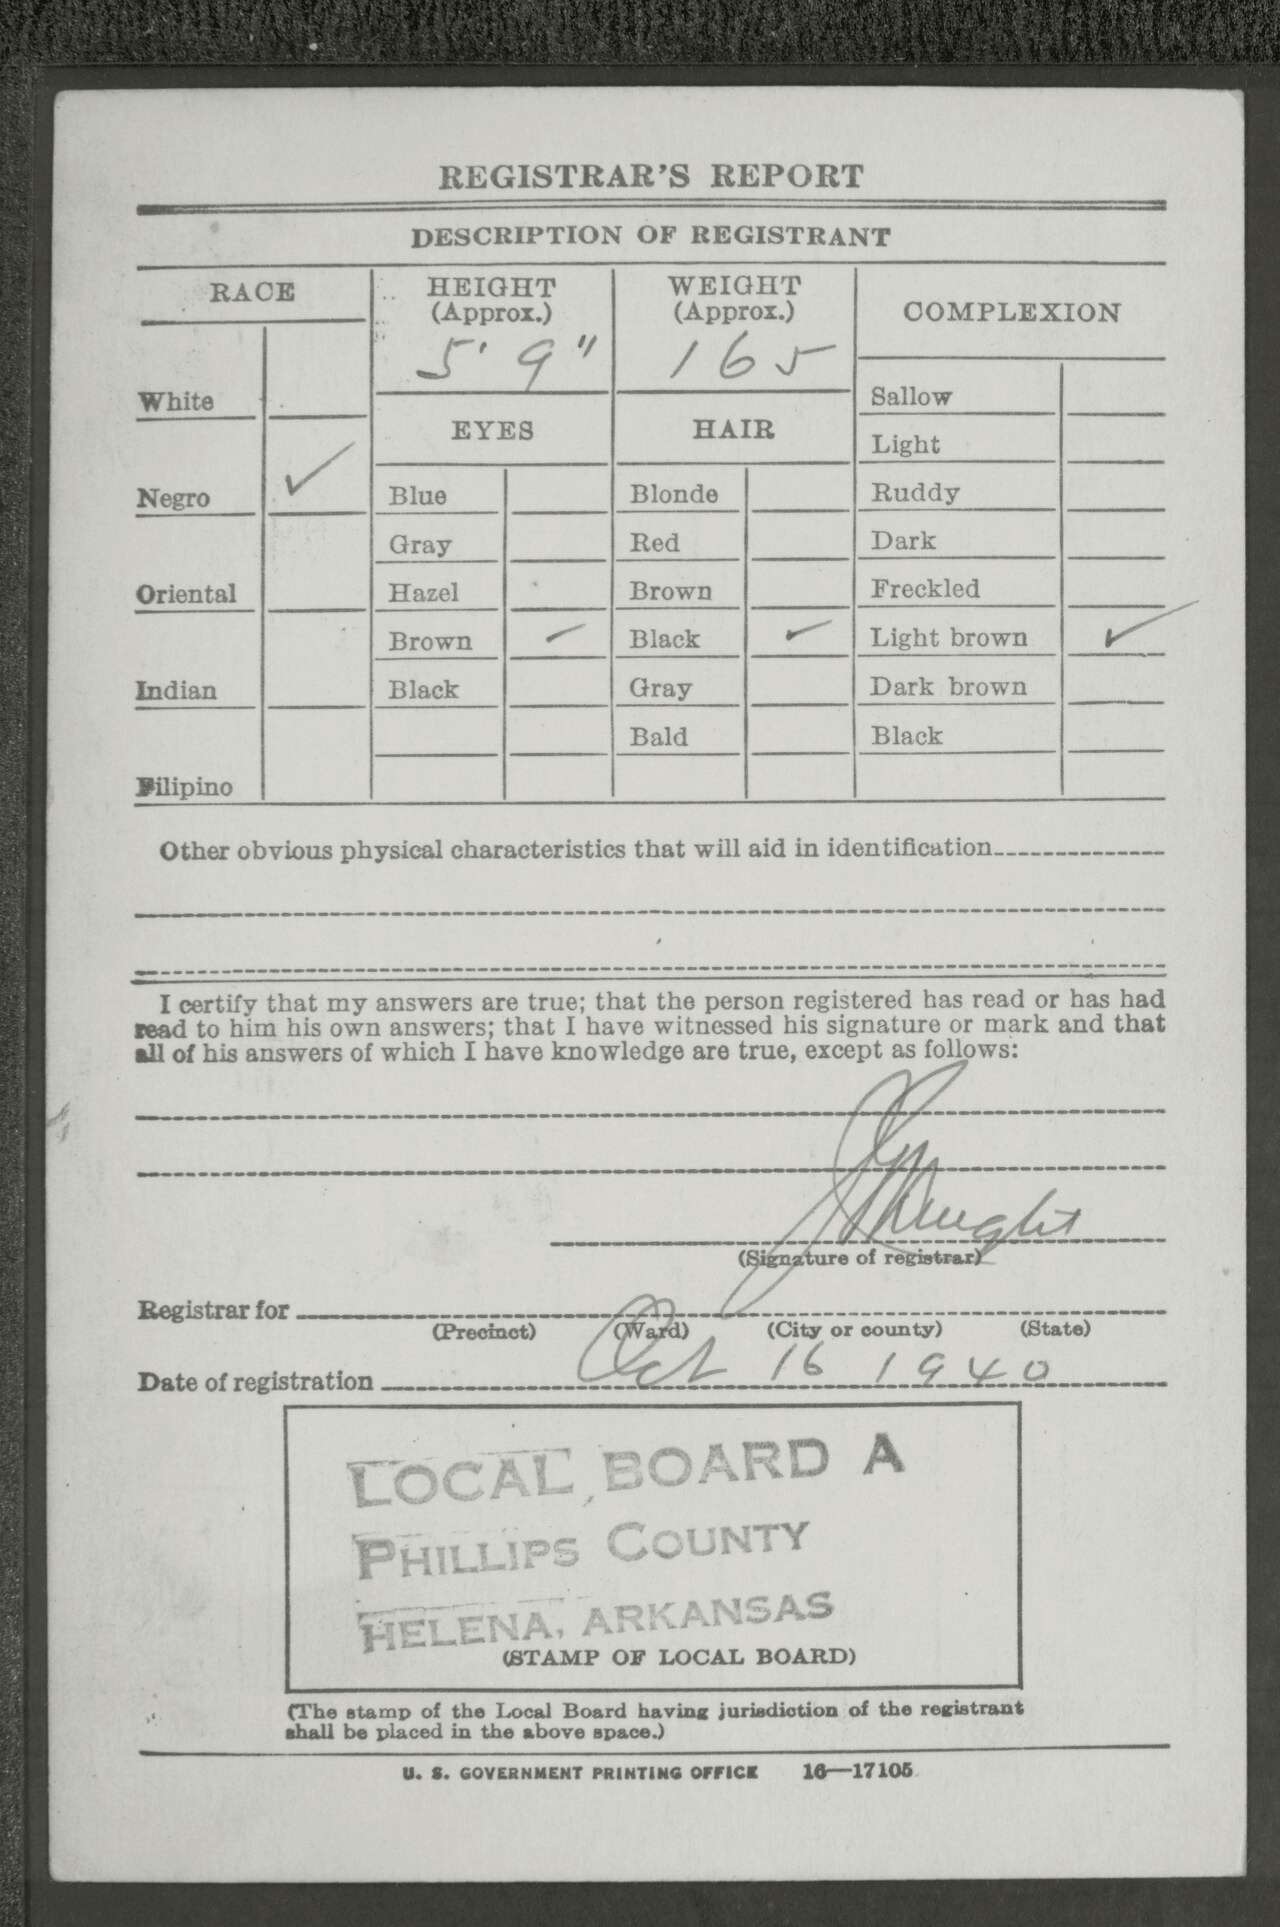 REGISTRAR'S REPORT
DESCRIPTION OF REGISTRANT
RACE
HEIGHT
(Approx.)
5' 9"
WEIGHT
(Approx.)
165
COMPLEXION
White
Negro ✓
Oriental
Indian
Filipino
EYES
Blue
Gray
Hazel
Brown ✓
Black
HAIR
Blonde
Red
Brown
Black ✓
Gray
Bald
Sallow
Light
Ruddy
Dark
Freckled
Light brown ✓
Dark brown
Black
Other obvious physical characteristics that will aid in identification
I certify that my answers are true; that the person registered has read or has had
read to him his own answers; that I have witnessed his signature or mark and that
all of his answers of which I have knowledge are true, except as follows:
(Signature of registrar)
Registrar for
(Precinct) (Ward) (City or county) (State)
Date of registration Oct 16 1940
LOCAL BOARD A
PHILLIPS COUNTY
HELENA, ARKANSAS
(STAMP OF LOCAL BOARD)
(The stamp of the Local Board having jurisdiction of the registrant
shall be placed in the above space.)
U. S. GOVERNMENT PRINTING OFFICE 16—17105